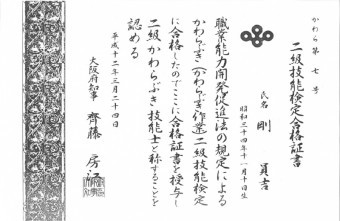 かわら第七号
二級技能検定合格証書
氏名 剛 貢吉
昭和三十四年十一月十日生
職業能力開発促進法の規定による
かわらぶき(かわらぶき作業)二級技能検定
に合格したのでここに合格証書を授与し
二級かわらぶき技能士と称することを
認める
平成十二年三月二十四日
大阪府知事 齊藤房江